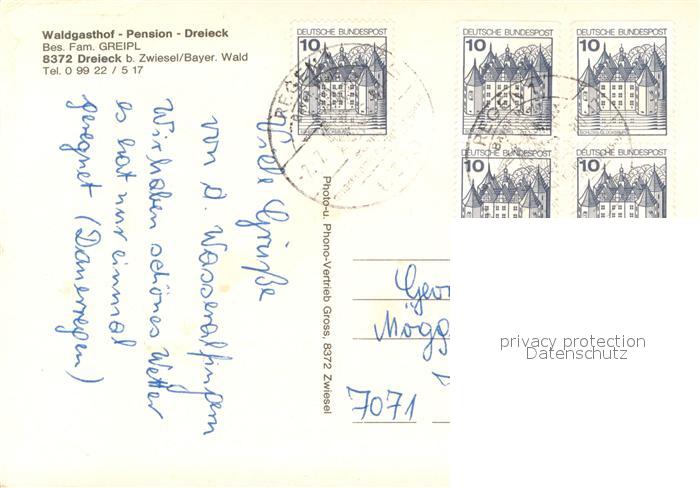 Waldgasthof - Pension - Dreieck
Bes. Fam. GREIPL
8372 Dreieck b. Zwiesel/Bayer. Wald
Tel. 0 99 22 / 5 17
Viele Grüße
von d. Wasseralfingern
Wir haben schönes Wetter
es hat nur einmal
geregnet (Dauerregen)
Photo-u. Phono-Vertrieb Gross, 8372 Zwiesel
10 DEUTSCHE BUNDESPOST
REGEN
DEUTSCHE BUNDESPOST
10
SCHLOSS GLÜCKSBURG
DEUTSCHE BUNDESPOST
10
SCHLOSS GLÜCKSBURG
REGEN 1
10
10
Geor
Mögg
7071
privacy protection
Datenschutz